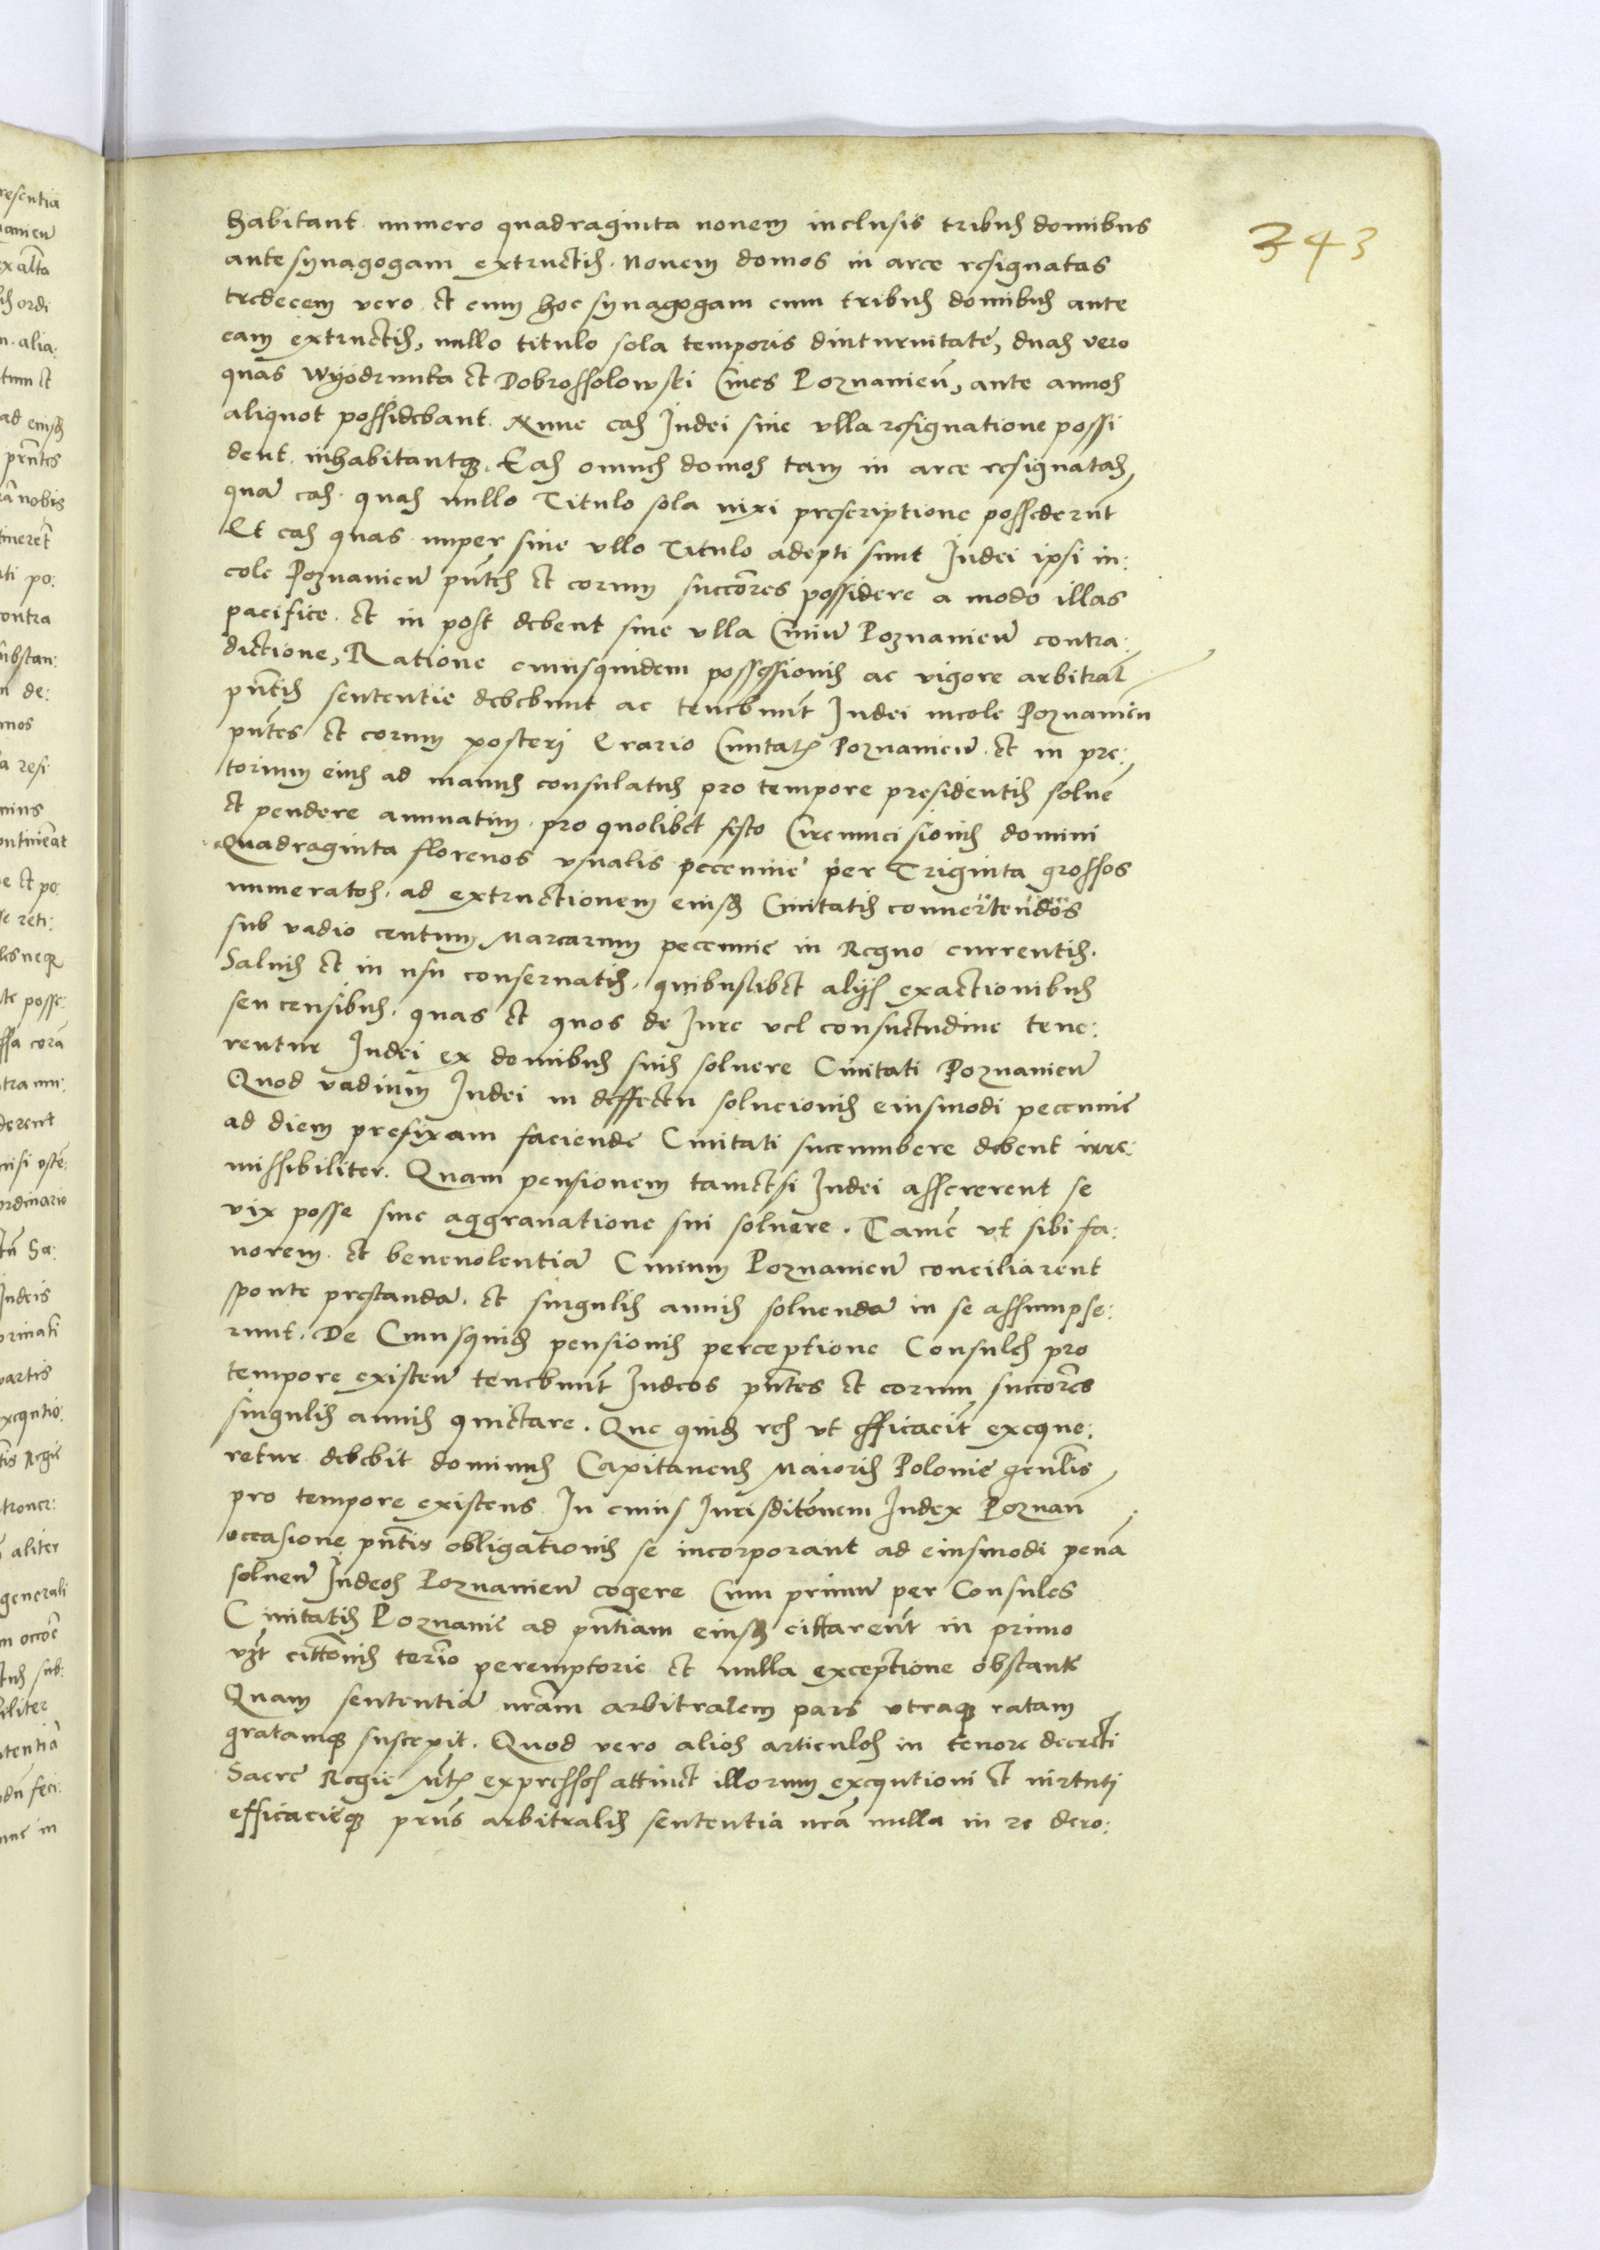 343
habitant numero quadraginta novem inclusis tribus domibus
ante synagogam extructis. Novem domos in arce resignatas
tredecem vero et cum hoc synagogam cum tribus domibus ante
eam extructis, nullo titulo sola temporis diuturnitate, duas vero
quas Wyodrunka et Dobrossolowski Cives Poznanien, ante annos
aliquot possidebant. Nunc eas Iudei sine ulla resignatione possi
dent inhabitantque. Eas omnes domos tam in arce resignatas,
quam eas quas nullo Titulo sola nixi prescriptione possederunt
Et eas quas nuper sine ullo Titulo adepti sunt Iudei ipsi in:
cole Poznanien pntes et eorum succores possidere a modo illas
pacifice et in post debent sine ulla Civium Poznanien contra:
dictione, Ratione cuiusquidem possessionis ac vigore arbitral
pntis sententie debebunt ac tenebunt Iudei incole Poznanien
pntes et eorum posteri Erario Civitatis Poznanien et in pre:
torium eius ad manus consulatus pro tempore presidentis solvere
et pendere annuatim pro quolibet festo Circumcisionis domini
Quadraginta florenos usualis peccunie per Triginta grossos
numeratos, ad extructionem eiusdem Civitatis convertendos
sub vadio centum Marcarum peccunie in Regno currentis.
Salvis et in usu conservatis, quibuslibet alijs exactionibus
seu censibus, quas et quos de Iure vel consuetudine tene:
rentur Iudei ex domibus suis solvere Civitati Poznanien
Quod vadium Iudei in deffectu solucionis eiusmodi peccunie
ad diem prefixam faciende Civitati succumbere debent irre:
missibiliter. Quam pensionem tametsi Iudei assererent se
vix posse sine aggravatione sui solvere. Tamen ut sibi fa:
vorem et benevolentiam Civium Poznanien conciliarent
sponte prestandam, et singulis annis solvendam in se assumpse:
runt. De Cuiusquidem pensionis perceptione Consules pro
tempore existen tenebunt Iudeos pntes et eorum succores
singulis annis quictare. Que quidem res ut efficacius exeque:
retur debebit dominus Capitaneus Maioris Polonie genlis
pro tempore existens In cuius Iurisditonem Index Poznan
occasione pntis obligationis se incorporant ad eiusmodi penam
solven Iudeos Poznanien cogere Cum primum per Consules
Civitatis Poznanie ad pntiam eiusdem cittarent in primo
vzt cittonis termino peremptorie et nulla exceptione obstante
Quam sententiam nram arbitralem pars utraque ratam
gratamque suscepit. Quod vero alios articulos in tenore decreti
Sacre Regie Mtis expressos attinet illorum exequtioni et virtuti
efficacieque pntis arbitralis sententia nra nulla in re dero: